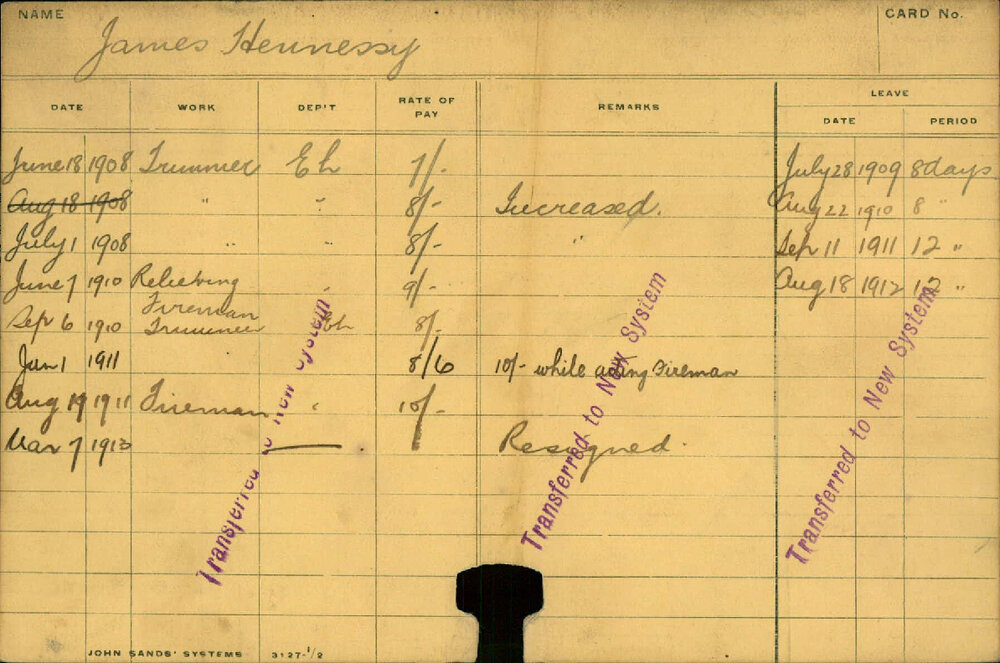 NAME
James Hennessy
CARD No.
DATE WORK DEP'T RATE OF PAY REMARKS LEAVE
DATE PERIOD
June 18 1908 Trimmer Eh 7/- July 28 1909 8 days
Aug 18 1908 " " 8/- Increased. Aug 22 1910 8 "
July 1 1908 " " 8/- " Sep 11 1911 12 "
June 7 1910 Relieving " 9/- Aug 18 1912 12 "
Fireman
Sep 6 1910 Trimmer Eh 8/-
Jan 1 1911 8/6 10/- while acting Fireman
Aug 19 1911 Fireman " 10/-
Mar 7 1913 Resigned.
Transferred to New System
Transferred to New System
Transferred to New System
JOHN SANDS' SYSTEMS 3127-1/2